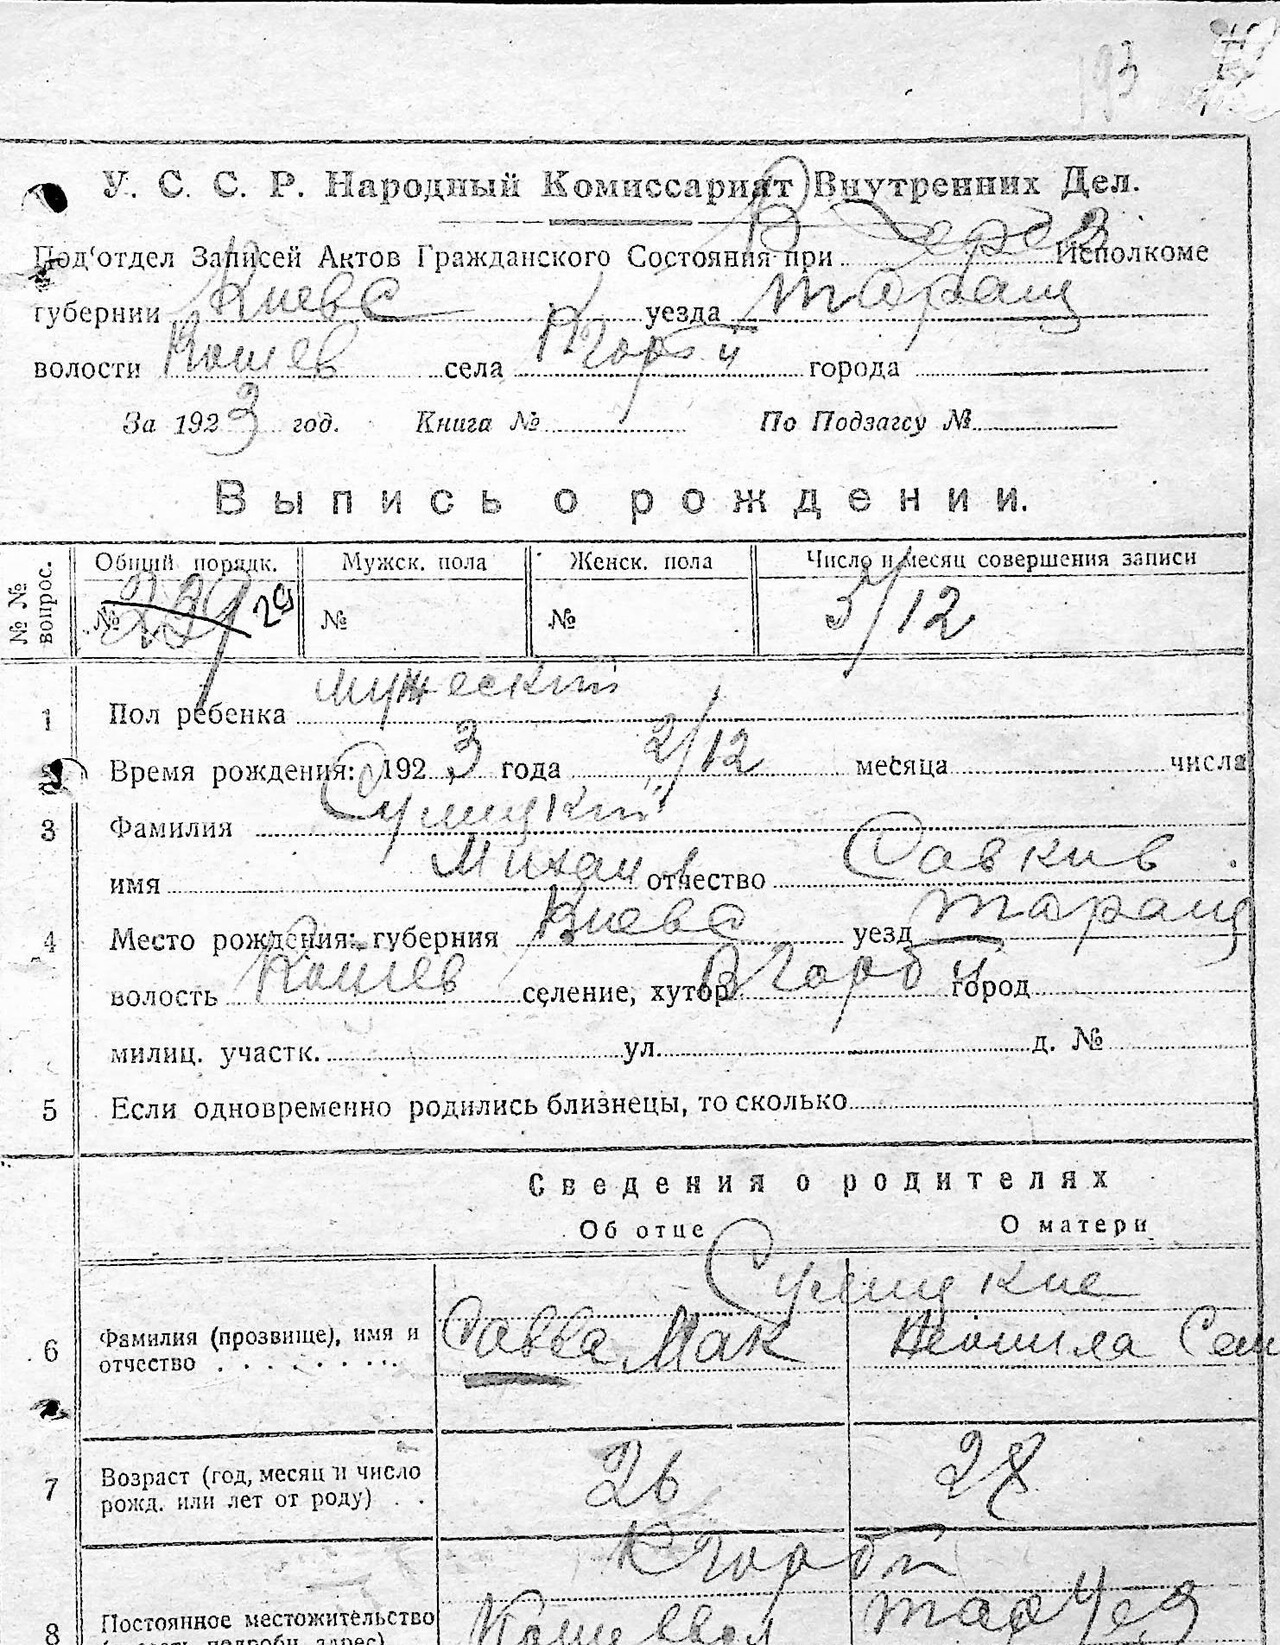 193
У. С. С. Р. Народный Комиссариат Внутренних Дел.
Под‘отдел Записей Актов Гражданского Состояния при Исполкоме
губернии Киевс уезда Таращ
волости Кошев села города
За 1923 год. Книга № По Подзагсу №
Выпись о рождении.
№ № вопрос. Общий порядк. Мужск. пола Женск. пола Число и месяц совершения записи
№ 239 29 № № 5/12
1 Пол ребенка мужеский
2 Время рождения: 1923 года 2/12 месяца числа
3 Фамилия Сулицкий
имя Михаил отчество Савкив
4 Место рождения: губерния Киевс уезд Таращ
волость Кошев селение, хутор город
милиц. участк. ул. д. №
5 Если одновременно родились близнецы, то сколько
Сведения о родителях
Об отце О матери
Сулицкие
6 Фамилия (прозвище), имя и отчество Савва Мак Неонила Сем
7 Возраст (год, месяц и число рожд. или лет от роду) 26 28
8 Постоянное местожительство